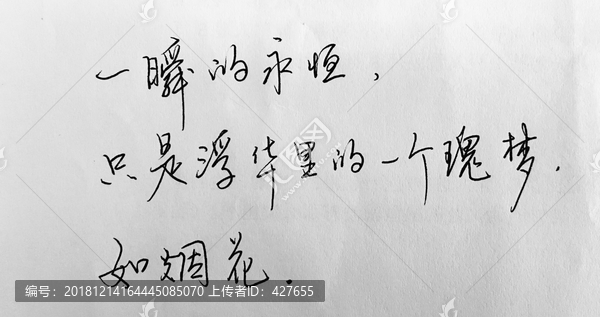 一瞬的永恒,
只是浮华里的一个瑰梦.
如烟花.
编号：20181214164445085070 上传者ID：427655